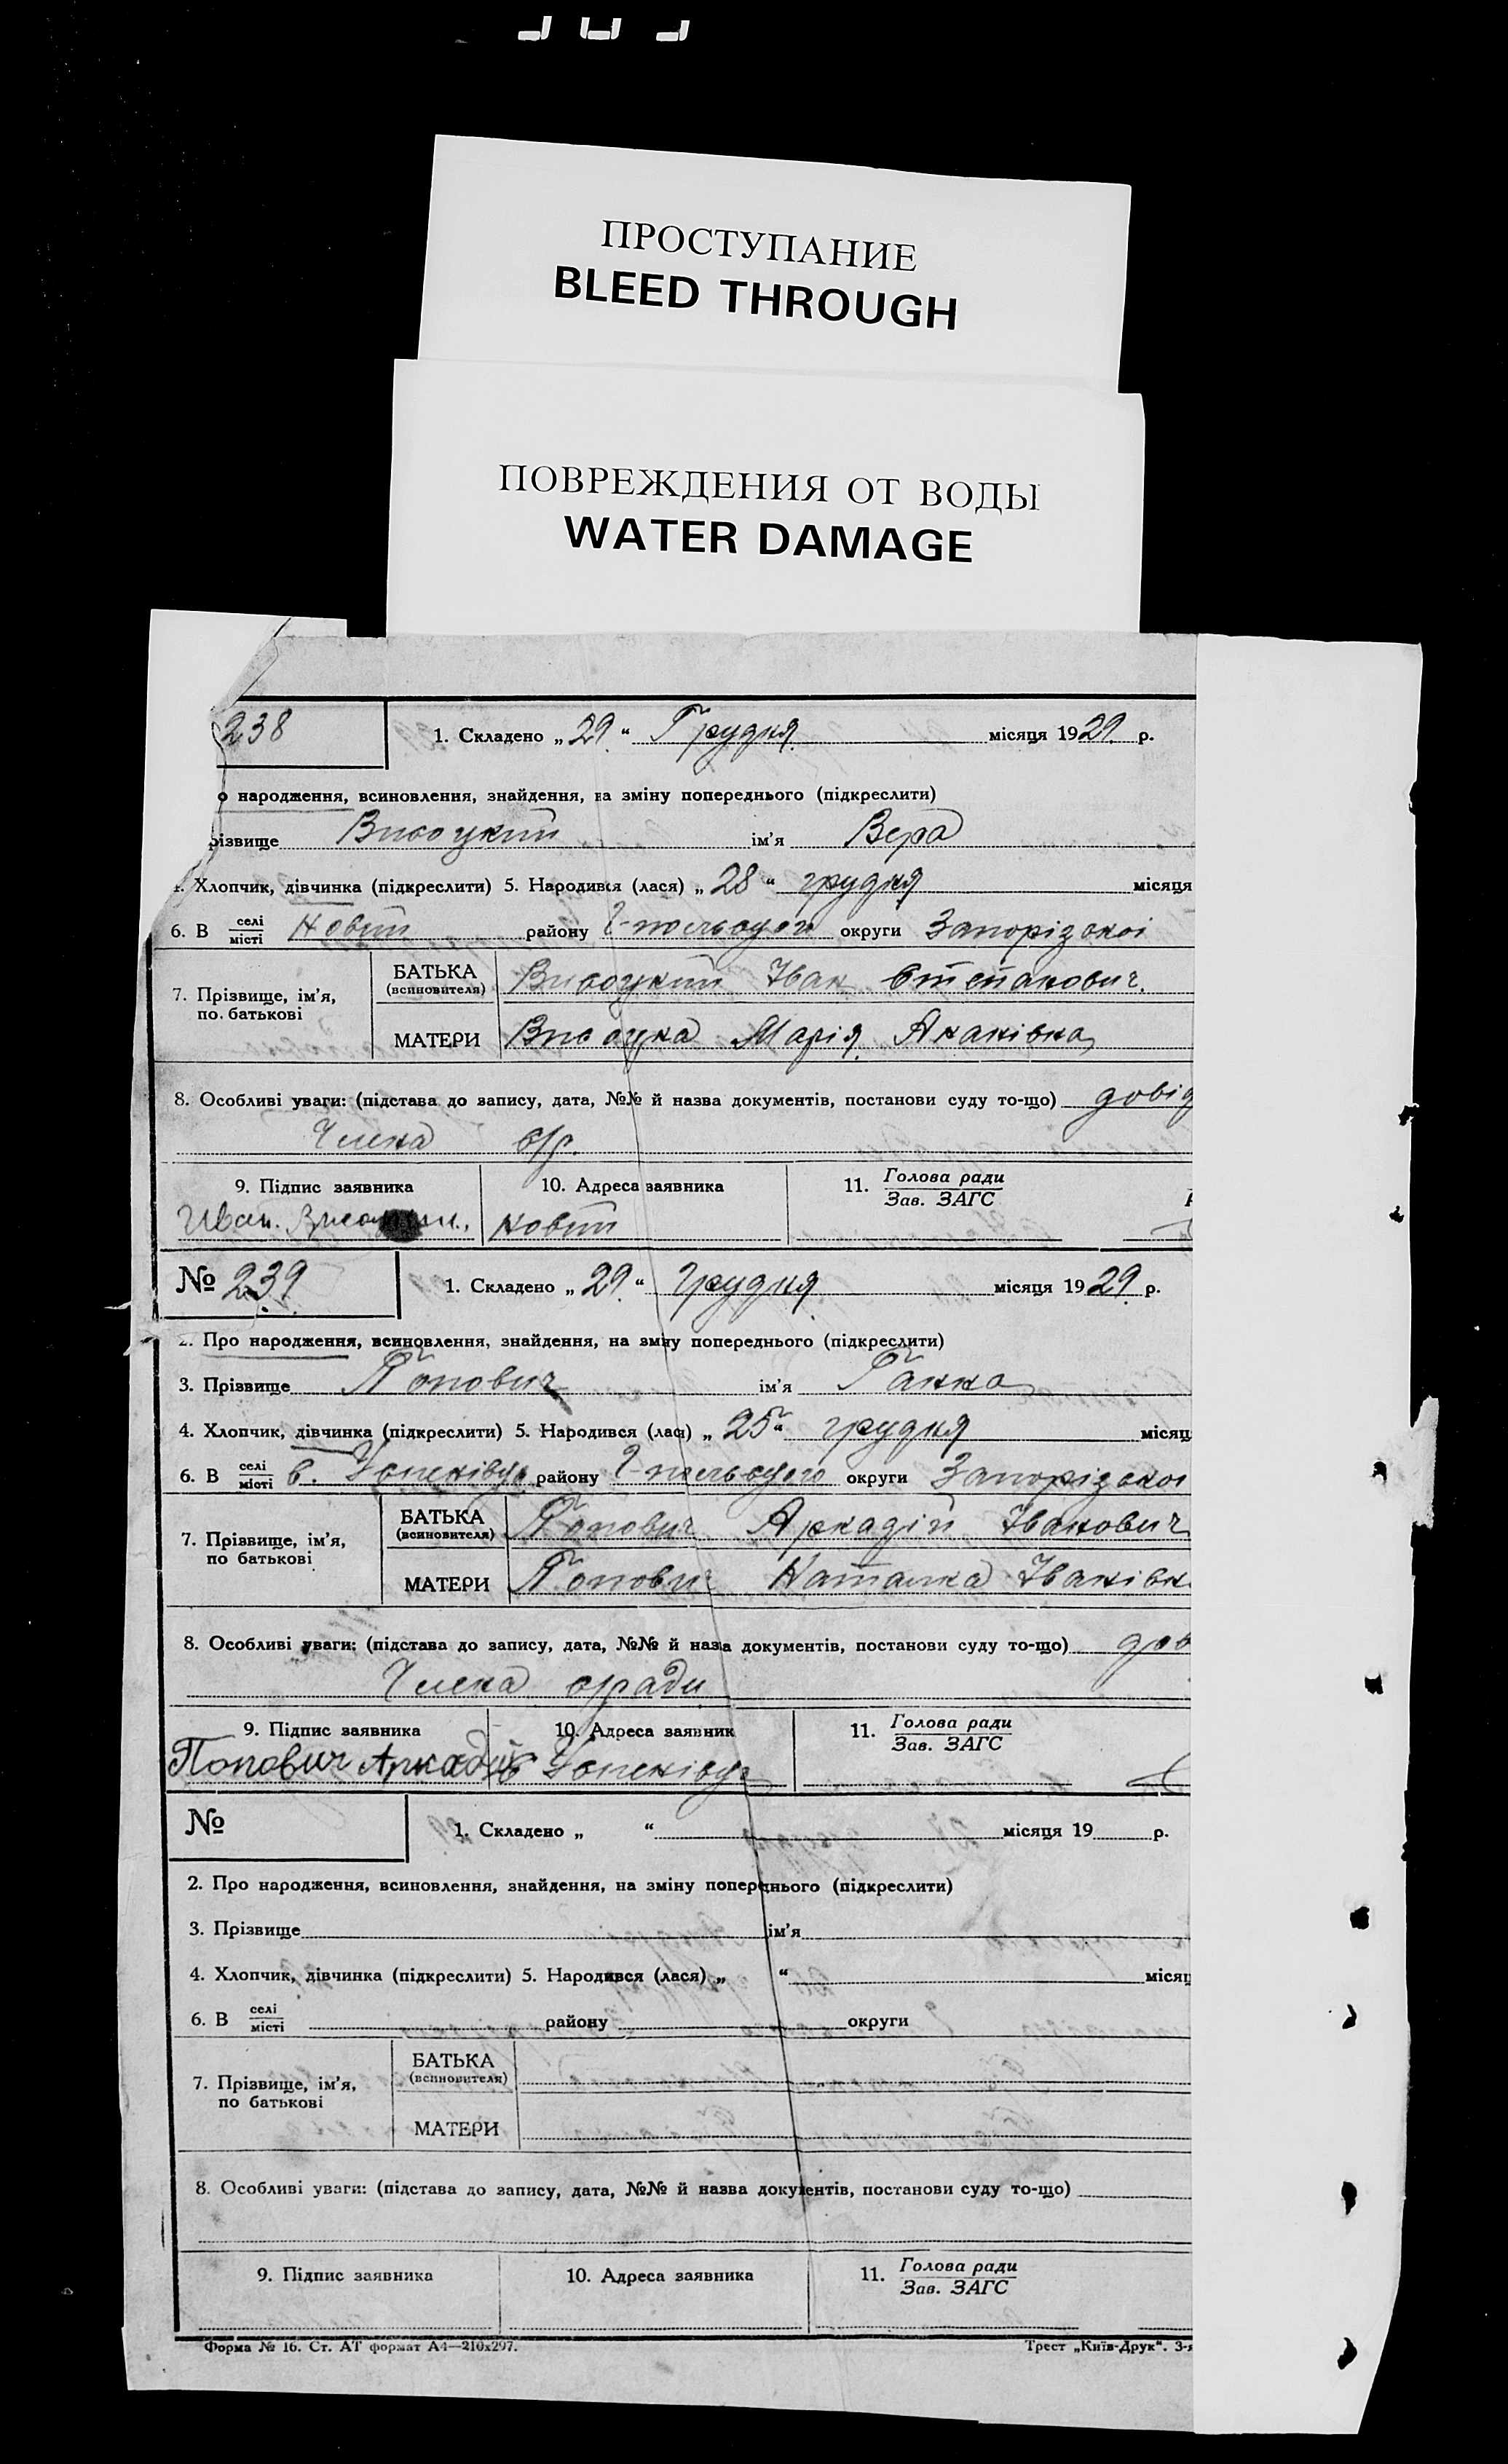 ПРОСТУПАНИЕ
BLEED THROUGH
ПОВРЕЖДЕНИЯ ОТ ВОДЫ
WATER DAMAGE
238 1. Складено „ 29 “ Грудня місяця 1929. р.
о народження, всиновлення, знайдення, на зміну попереднього (підкреслити)
різвище Висоцкий ім'я Вера
4. Хлопчик, дівчинка (підкреслити) 5. Народився (лася) „ 28 “ грудня місяця
6. В селі/місті Новий району Г-польського округи Запорізької
7. Прізвище, ім'я, по. батькові
БАТЬКА (всиновителя) Висоцкий Іван Степанович.
МАТЕРИ Висоцка Марія
8. Особливі уваги: (підстава до запису, дата, №№ й назва документів, постанови суду то-що) довід
Члена с/р.
9. Підпис заявника 10. Адреса заявника 11. Голова ради / Зав. ЗАГС
Иван. Новий
№ 239 1. Складено „ 29 “ Грудня місяця 1929. р.
2. Про народження, всиновлення, знайдення, на зміну попереднього (підкреслити)
3. Прізвище Попович ім'я Ганна
4. Хлопчик, дівчинка (підкреслити) 5. Народився (лася) „ 25 “ грудня місяц
6. В селі/місті с. району Г-польського округи Запорізької
7. Прізвище, ім'я, по батькові
БАТЬКА (всиновителя) Попович Аркадій Іванович
МАТЕРИ Попович Наталка Іванівн
8. Особливі уваги: (підстава до запису, дата, №№ й назва документів, постанови суду то-що) дов
Члена с/ради
9. Підпис заявника 10. Адреса заявник 11. Голова ради / Зав. ЗАГС
Попович Аркадій
№ 1. Складено „ “ місяця 19 р.
2. Про народження, всиновлення, знайдення, на зміну попереднього (підкреслити)
3. Прізвище ім'я
4. Хлопчик, дівчинка (підкреслити) 5. Народився (лася) „ “ місяц
6. В селі/місті району округи
7. Прізвище, ім'я, по батькові
БАТЬКА (всиновителя)
МАТЕРИ
8. Особливі уваги: (підстава до запису, дата, №№ й назва документів, постанови суду то-що)
9. Підпис заявника 10. Адреса заявника 11. Голова ради / Зав. ЗАГС
Форма № 16. Ст. АТ формат А4—210х297. Трест „Київ-Друк“. 3-я